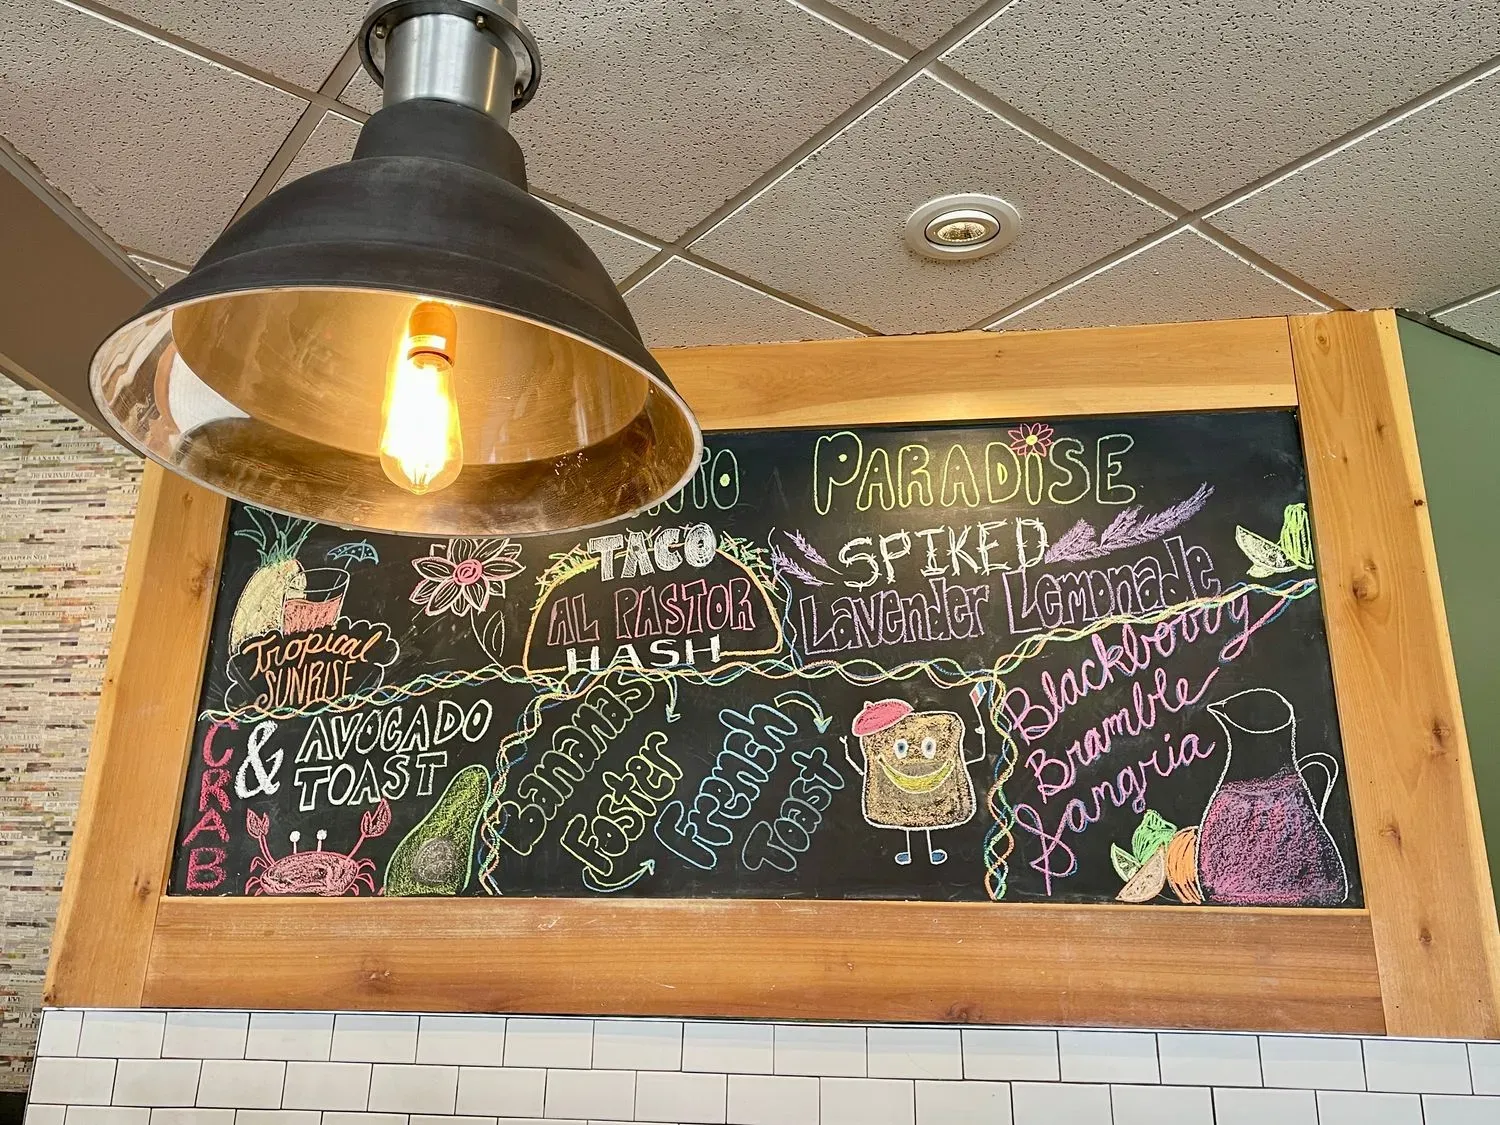 PARADISE
Tropical
SUNRISE
TACO
AL PASTOR
HASH
SPIKED
Lavender Lemonade
CRAB
& AVOCADO
TOAST
Bananas
Foster
French
Toast
Blackberry
Bramble
Sangria